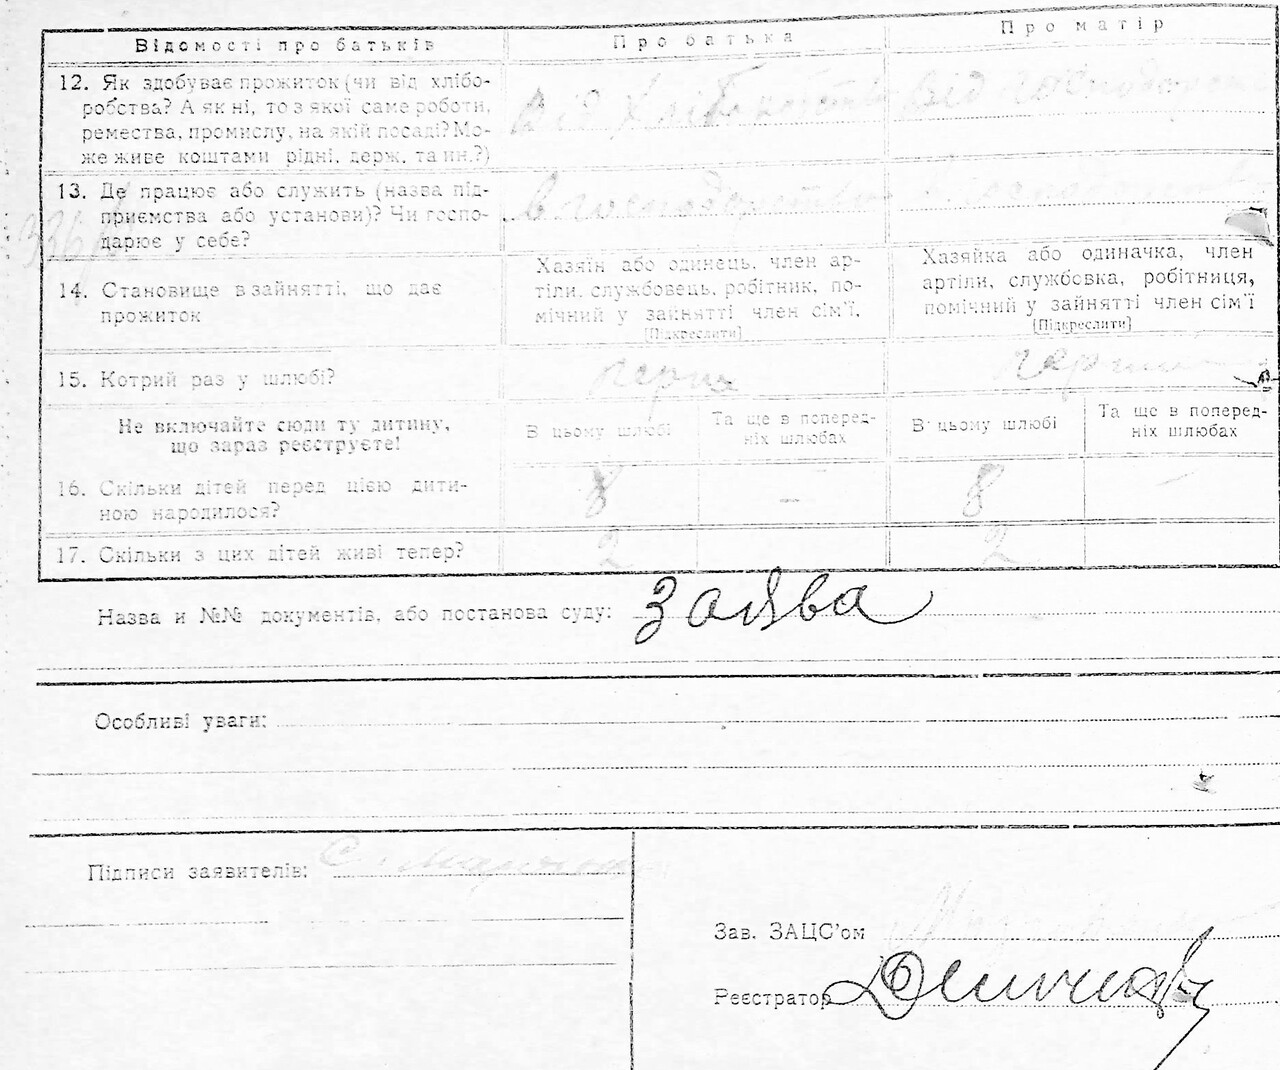 Відомості про батьків
Про батька
Про матір
12. Як здобуває прожиток (чи від хлібо-
робства? А як ні, то з якої саме роботи,
ремества, промислу, на якій посаді? Мо-
же живе коштами рідні, держ. та ин.?)
від
від
13. Де працює або служить (назва під-
приємства або установи)? Чи госпо-
дарює у себе?
14. Становище в зайнятті, що дає
прожиток
Хазяїн або одинець, член ар-
тіли, службовець, робітник, по-
мічний у зайнятті член сім'ї.
[Підкреслити]
Хазяйка або одиначка, член
артіли, службовка, робітниця,
помічний у зайнятті член сім'ї
[Підкреслити]
15. Котрий раз у шлюбі?
Не включайте сюди ту дитину,
що зараз реєструєте!
В цьому шлюбі
Та ще в поперед-
ніх шлюбах
В цьому шлюбі
Та ще в поперед-
ніх шлюбах
16. Скільки дітей перед цією дити-
ною народилося?
8
–
8
–
17. Скільки з цих дітей живі тепер?
2
2
Назва и №№ документів, або постанова суду: Заява
Особливі уваги:
Підписи заявителів:
Зав. ЗАЦС'ом
Реєстратор